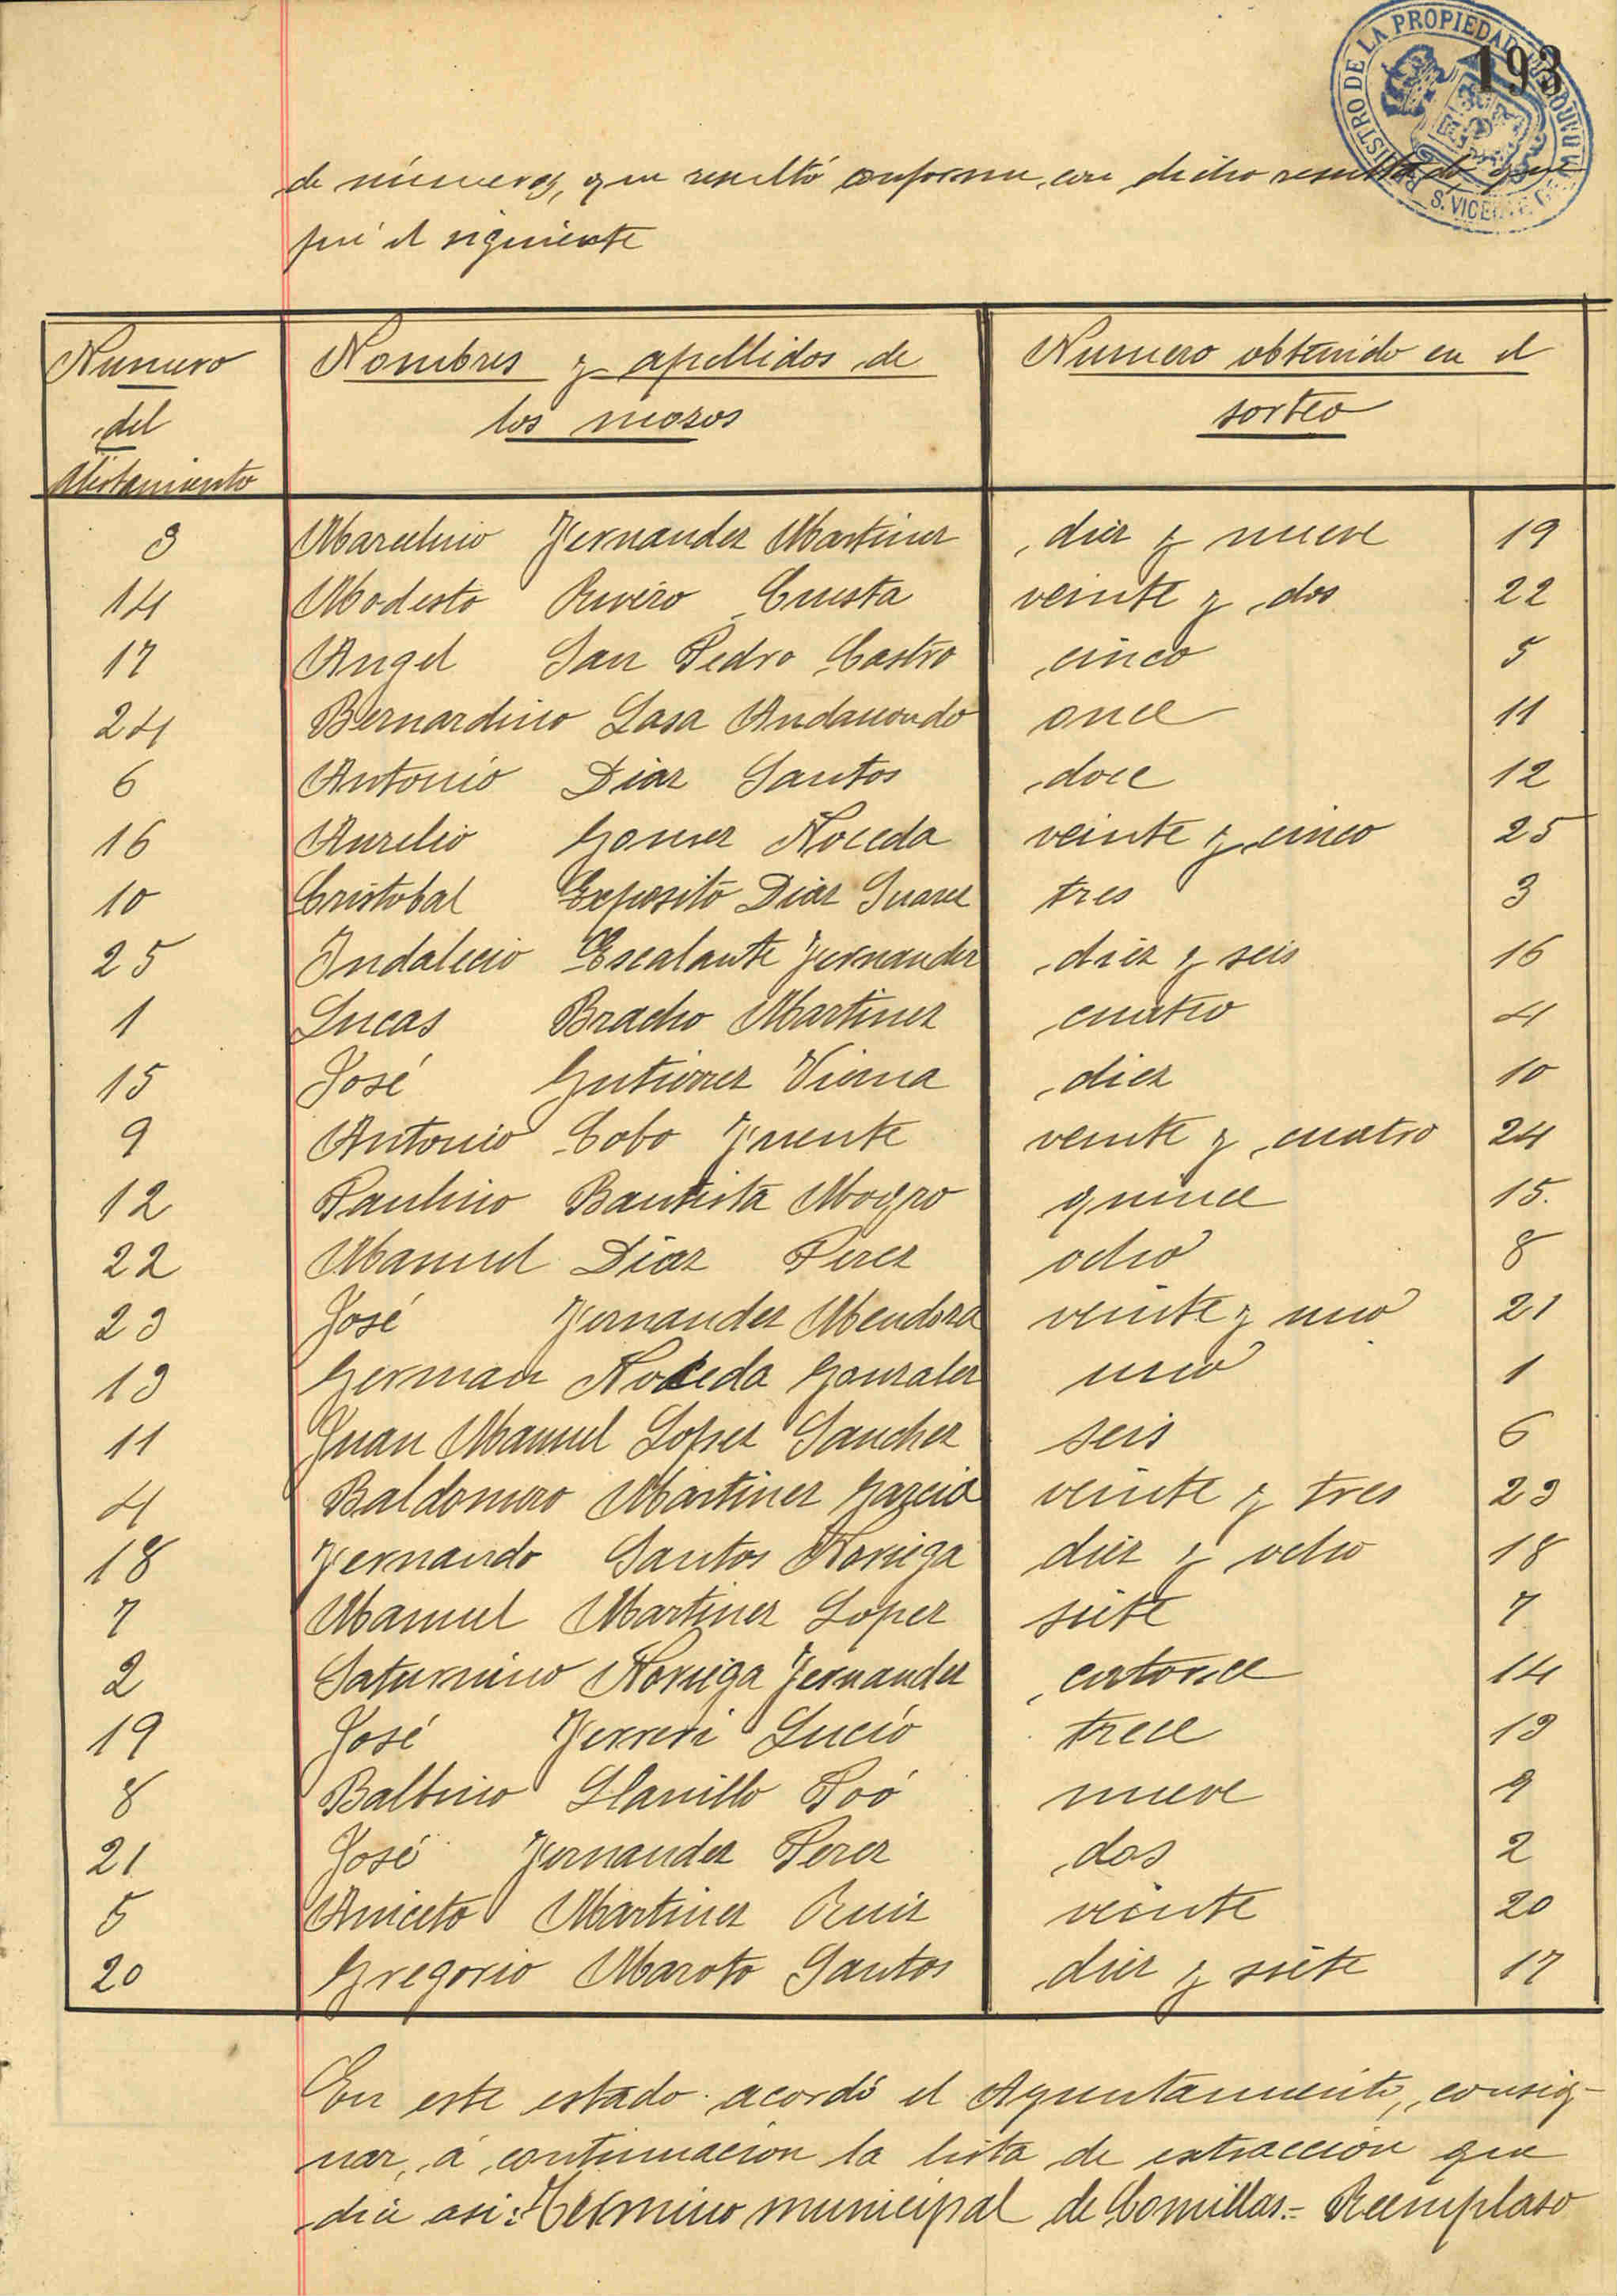 193
REGISTRO DE LA PROPIEDAD S. VICENTE DE
de números, que resultó conforme con dicho resultado que
fué el siguiente
Numero del Alistamiento | Nombres y apellidos de los mozos | Numero obtenido en el sorteo
3 Marcelino Fernandez Martinez diez y nueve 19
14 Modesto Rivero Cuesta veinte y dos 22
17 Angel San Pedro Castro cinco 5
24 Bernardino Lasa Andamondo once 11
6 Antonio Diaz Santos doce 12
16 Aurelio Gomez Noceda veinte y cinco 25
10 Cristobal Exposito Diaz Suarez tres 3
25 Indalecio Escalante Fernandez diez y seis 16
1 Lucas Bracho Martinez cuatro 4
15 José Gutierrez Vierna diez 10
9 Antonio Cobo Fuente veinte y cuatro 24
12 Paulino Bautista Mogro quince 15.
22 Manuel Diaz Perez ocho 8
23 José Fernandez Mendoza veinte y uno 21
13 German Noceda Gonzalez uno 1
11 Juan Manuel Lopez Sanchez seis 6
4 Baldomero Martinez Garcia veinte y tres 23
18 Fernando Santos Noriega diez y ocho 18
7 Manuel Martinez Lopez siete 7
2 Saturnino Noriega Fernandez catorce 14
19 José Ferreri Lucio trece 13
8 Balbino Llanillo Poó nueve 9
21 José Fernandez Perez dos 2
5 Aniceto Martinez Ruiz veinte 20
20 Gregorio Maroto Santos diez y siete 17
En este estado acordó el Ayuntamiento, consig-
nar, á continuacion la lista de extracción que
dice asi: Término municipal de Comillas.= Reemplazo